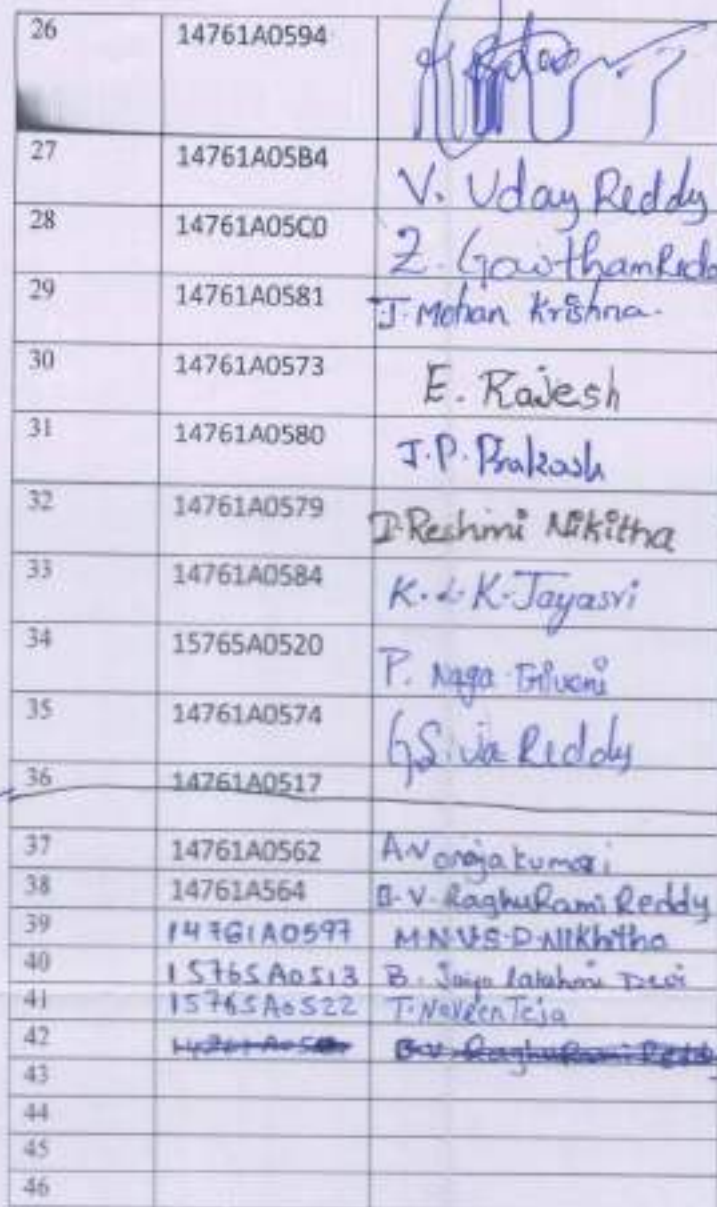 26 14761A0594
27 14761A05B4 V. Uday Reddy
28 14761A05C0 Z. Gowtham Redd
29 14761A0581 J. Mohan Krishna.
30 14761A0573 E. Rajesh
31 14761A0580 J.P. Prakash
32 14761A0579 I. Reshmi Nikitha
33 14761A0584 K.L.K. Jayasri
34 15765A0520 P. Naga Triveni
35 14761A0574 G Siva Reddy
36 14761A0517
37 14761A0562 A. Vanajakumari
38 14761A564 B.V. Raghu Rami Reddy
39 14761A0597 M.N.V.S.D. Nikhitha
40 15765A0513 B. Jaya Lakshmi Devi
41 15765A0522 T. Naveen Teja
42 B.V. Raghu Rami Reddy
43
44
45
46